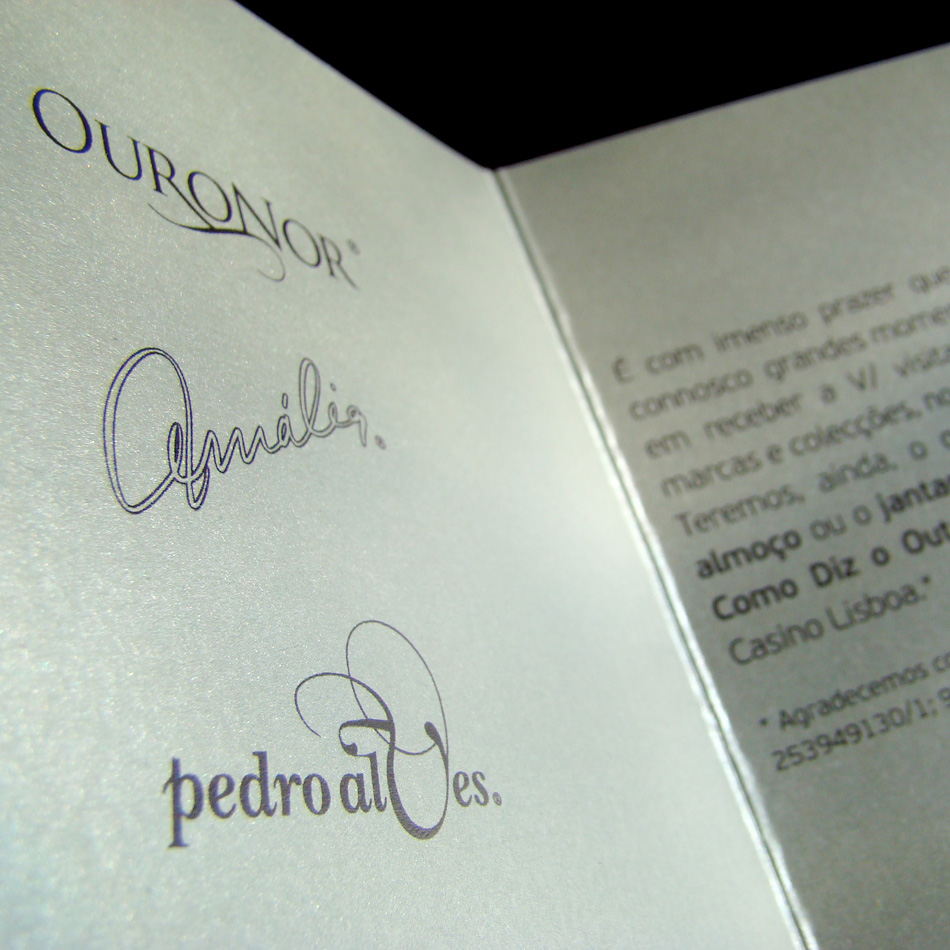 OURONOR®
Amália®
pedro alves®
É com imenso prazer que
connosco grandes
em receber a V/
marcas e colecções,
Teremos, ainda, o
almoço ou o
Como Diz o
Casino Lisboa.*
* Agradecemos
253949130/1;